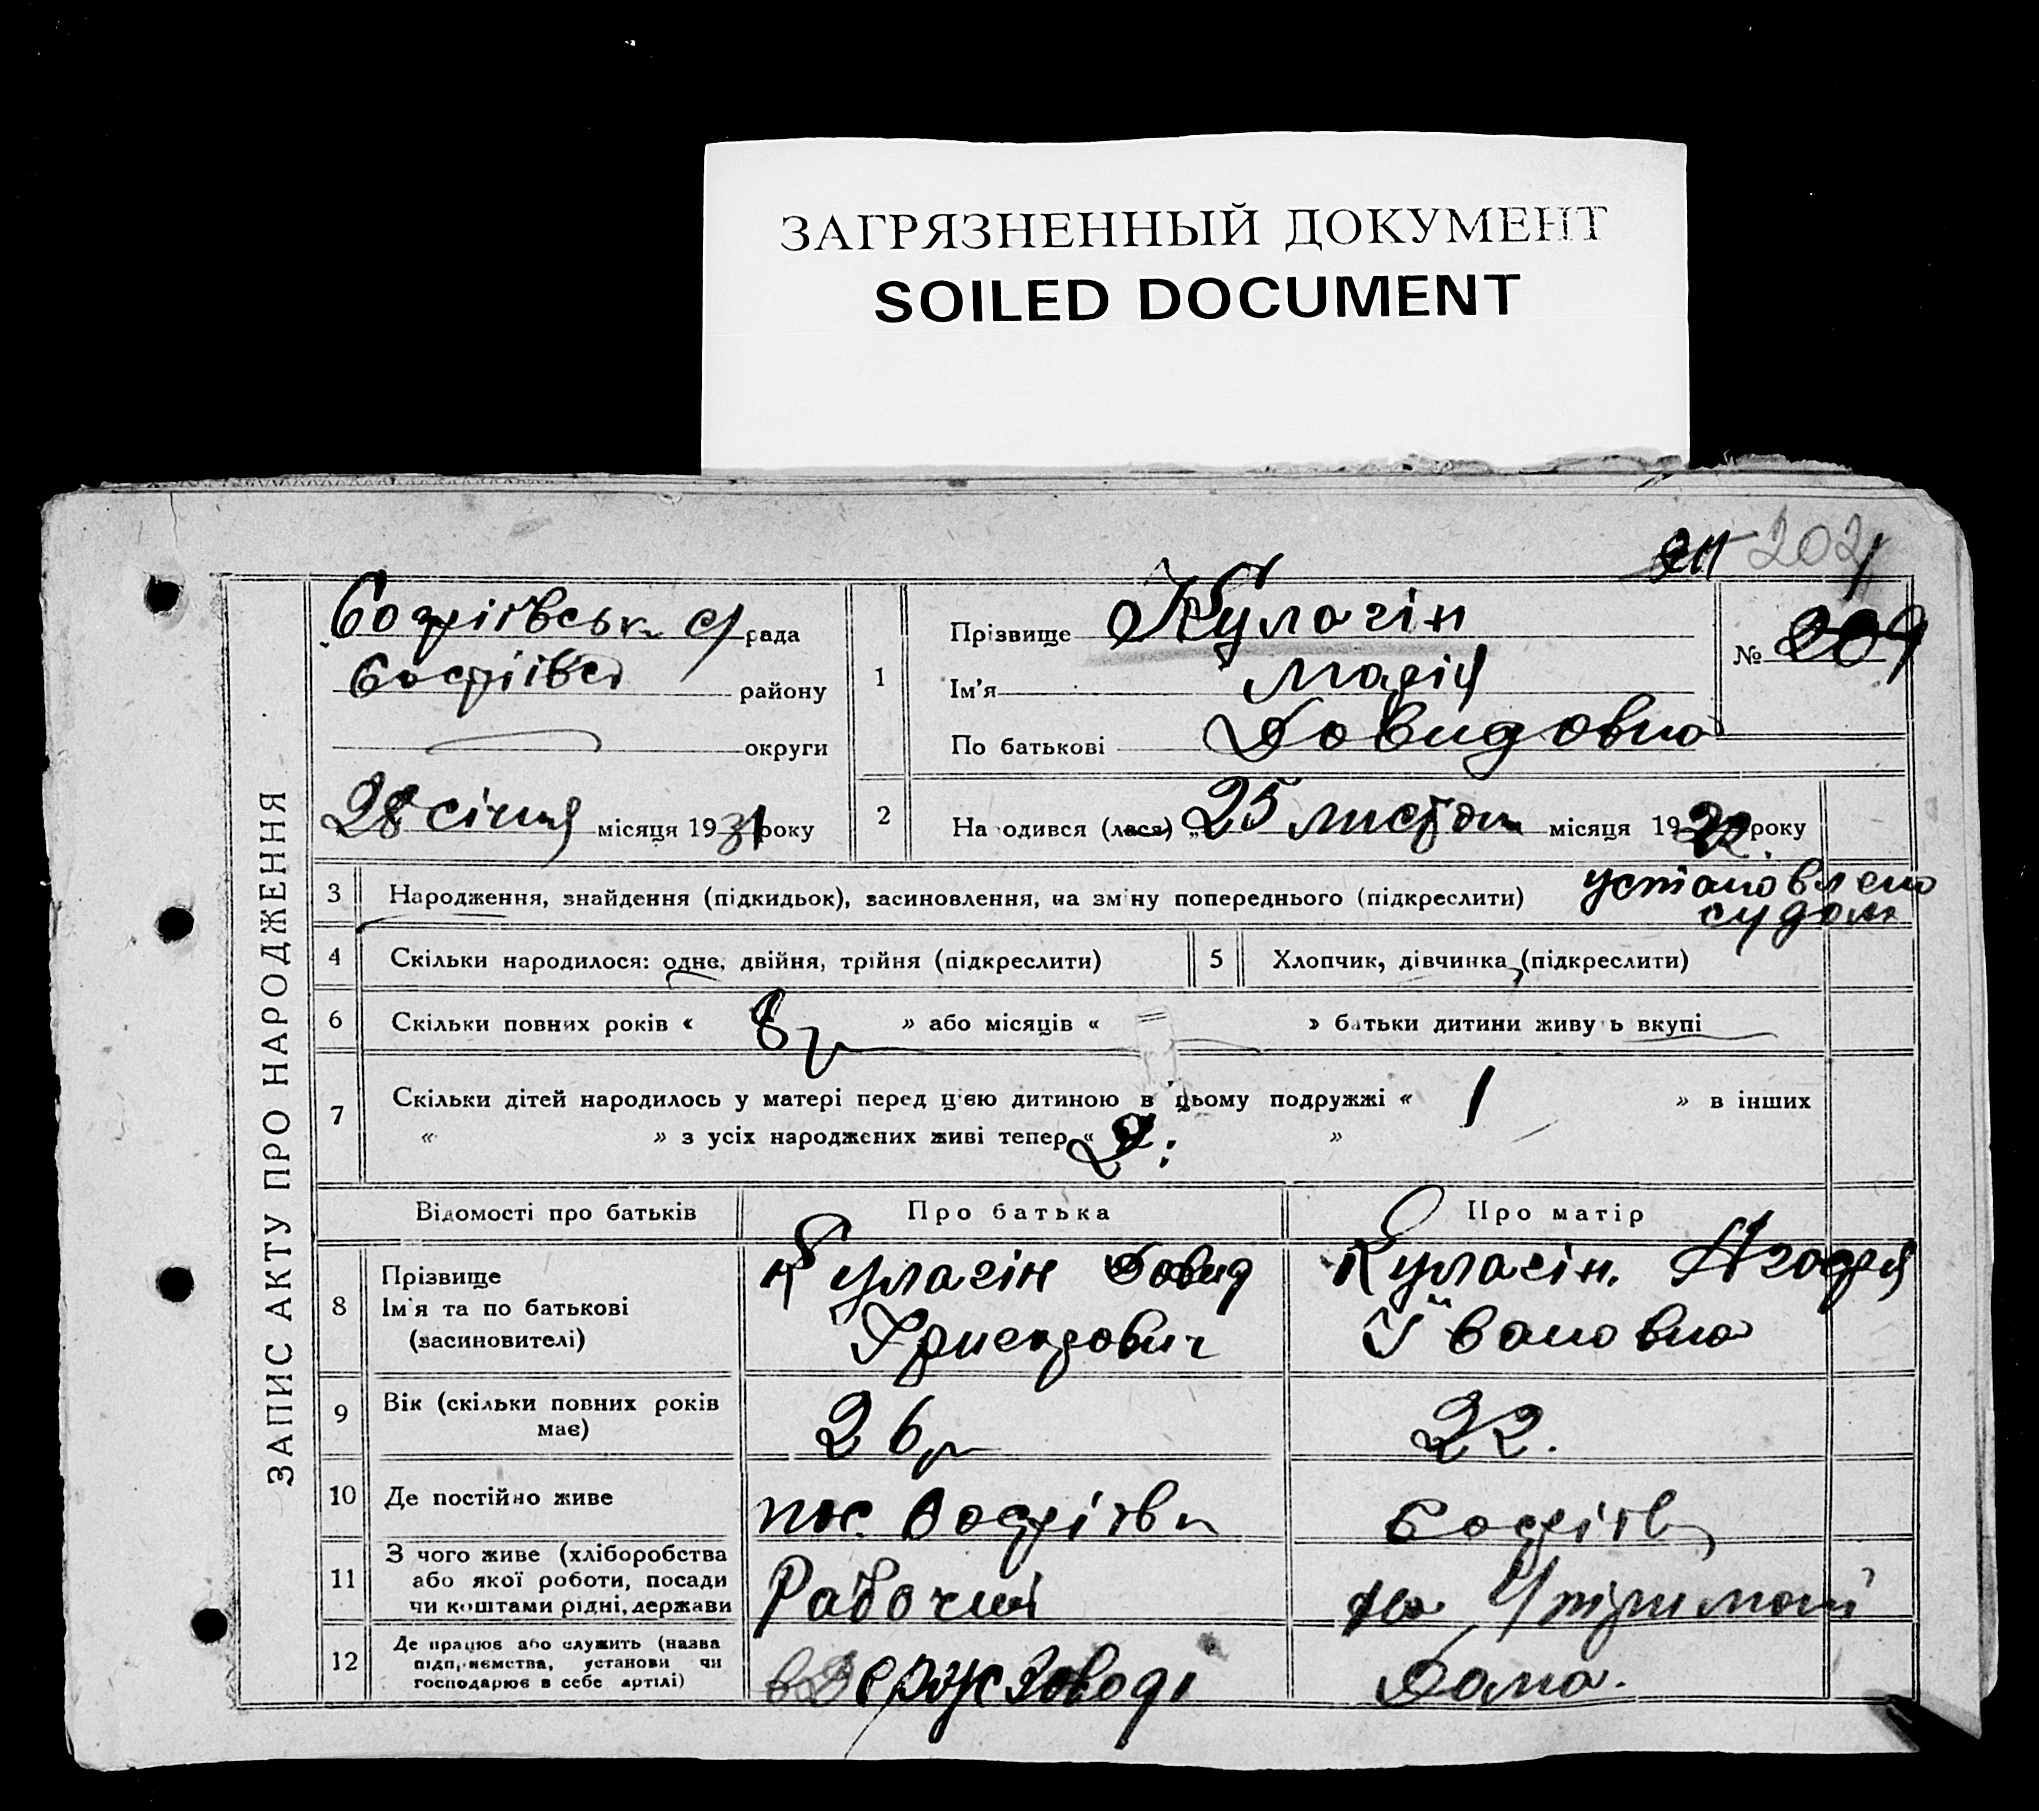 ЗАГРЯЗНЕННЫЙ ДОКУМЕНТ
SOILED DOCUMENT
202
ЗАПИС АКТУ ПРО НАРОДЖЕННЯ
с/рада
району
округи
28 січня місяця 1931 року
1
Прізвище Кулагін
Ім'я Марія
По батькові Довидовна
№ 209
2
Народився (лася) „25 листоп місяця 19 року
3 Народження, знайдення (підкидьок), засиновлення, на зміну попереднього (підкреслити) установлено судом
4 Скільки народилося: одне, двійня, трійня (підкреслити)
5 Хлопчик, дівчинка (підкреслити)
6 Скільки повних років « 8 » або місяців « = » батьки дитини живуть вкупі
7 Скільки дітей народилось у матері перед цією дитиною в цьому подружжі « 1 » в інших
« » з усіх народжених живі тепер « 2 »
Відомості про батьків
Про батька
Про матір
8 Прізвище
Ім'я та по батькові
(засиновителі)
Кулагін Довид
Кулагін. Агафія
Івановна
9 Вік (скільки повних років
має)
26р
22.
10 Де постійно живе
пос.
11 З чого живе (хліборобства
або якої роботи, посади
чи коштами рідні, держави
Рабочий
на утріманні
12 Де працює або служить (назва
підприємства, установи чи
господарює в себе артілі)
в Держ Заводі
Дома.